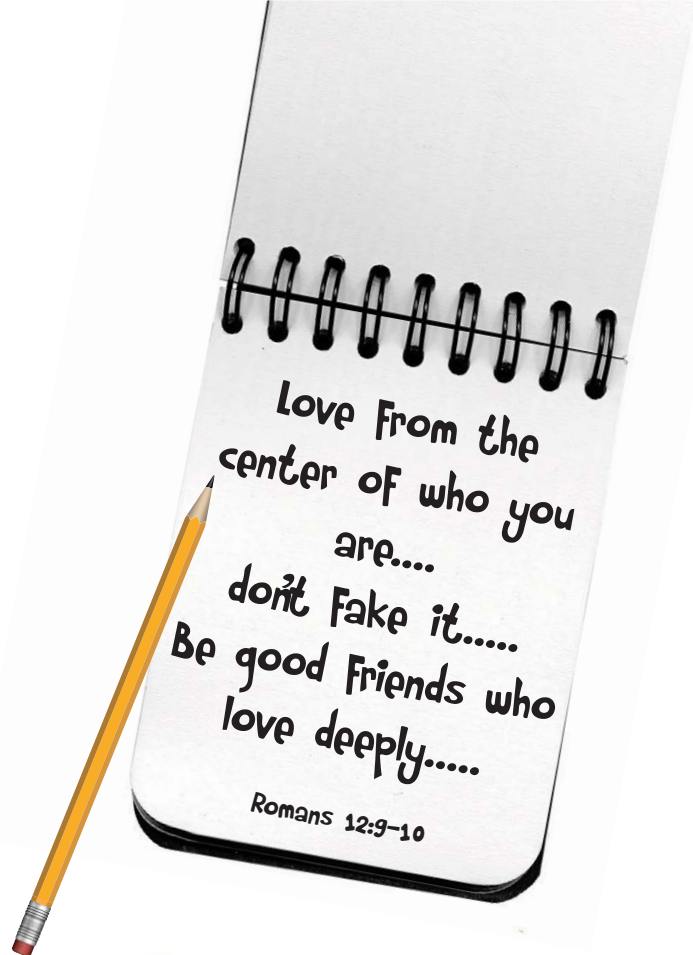 Love From the
center of who you
are....
don't Fake it.....
Be good Friends who
love deeply.....
Romans 12:9-10